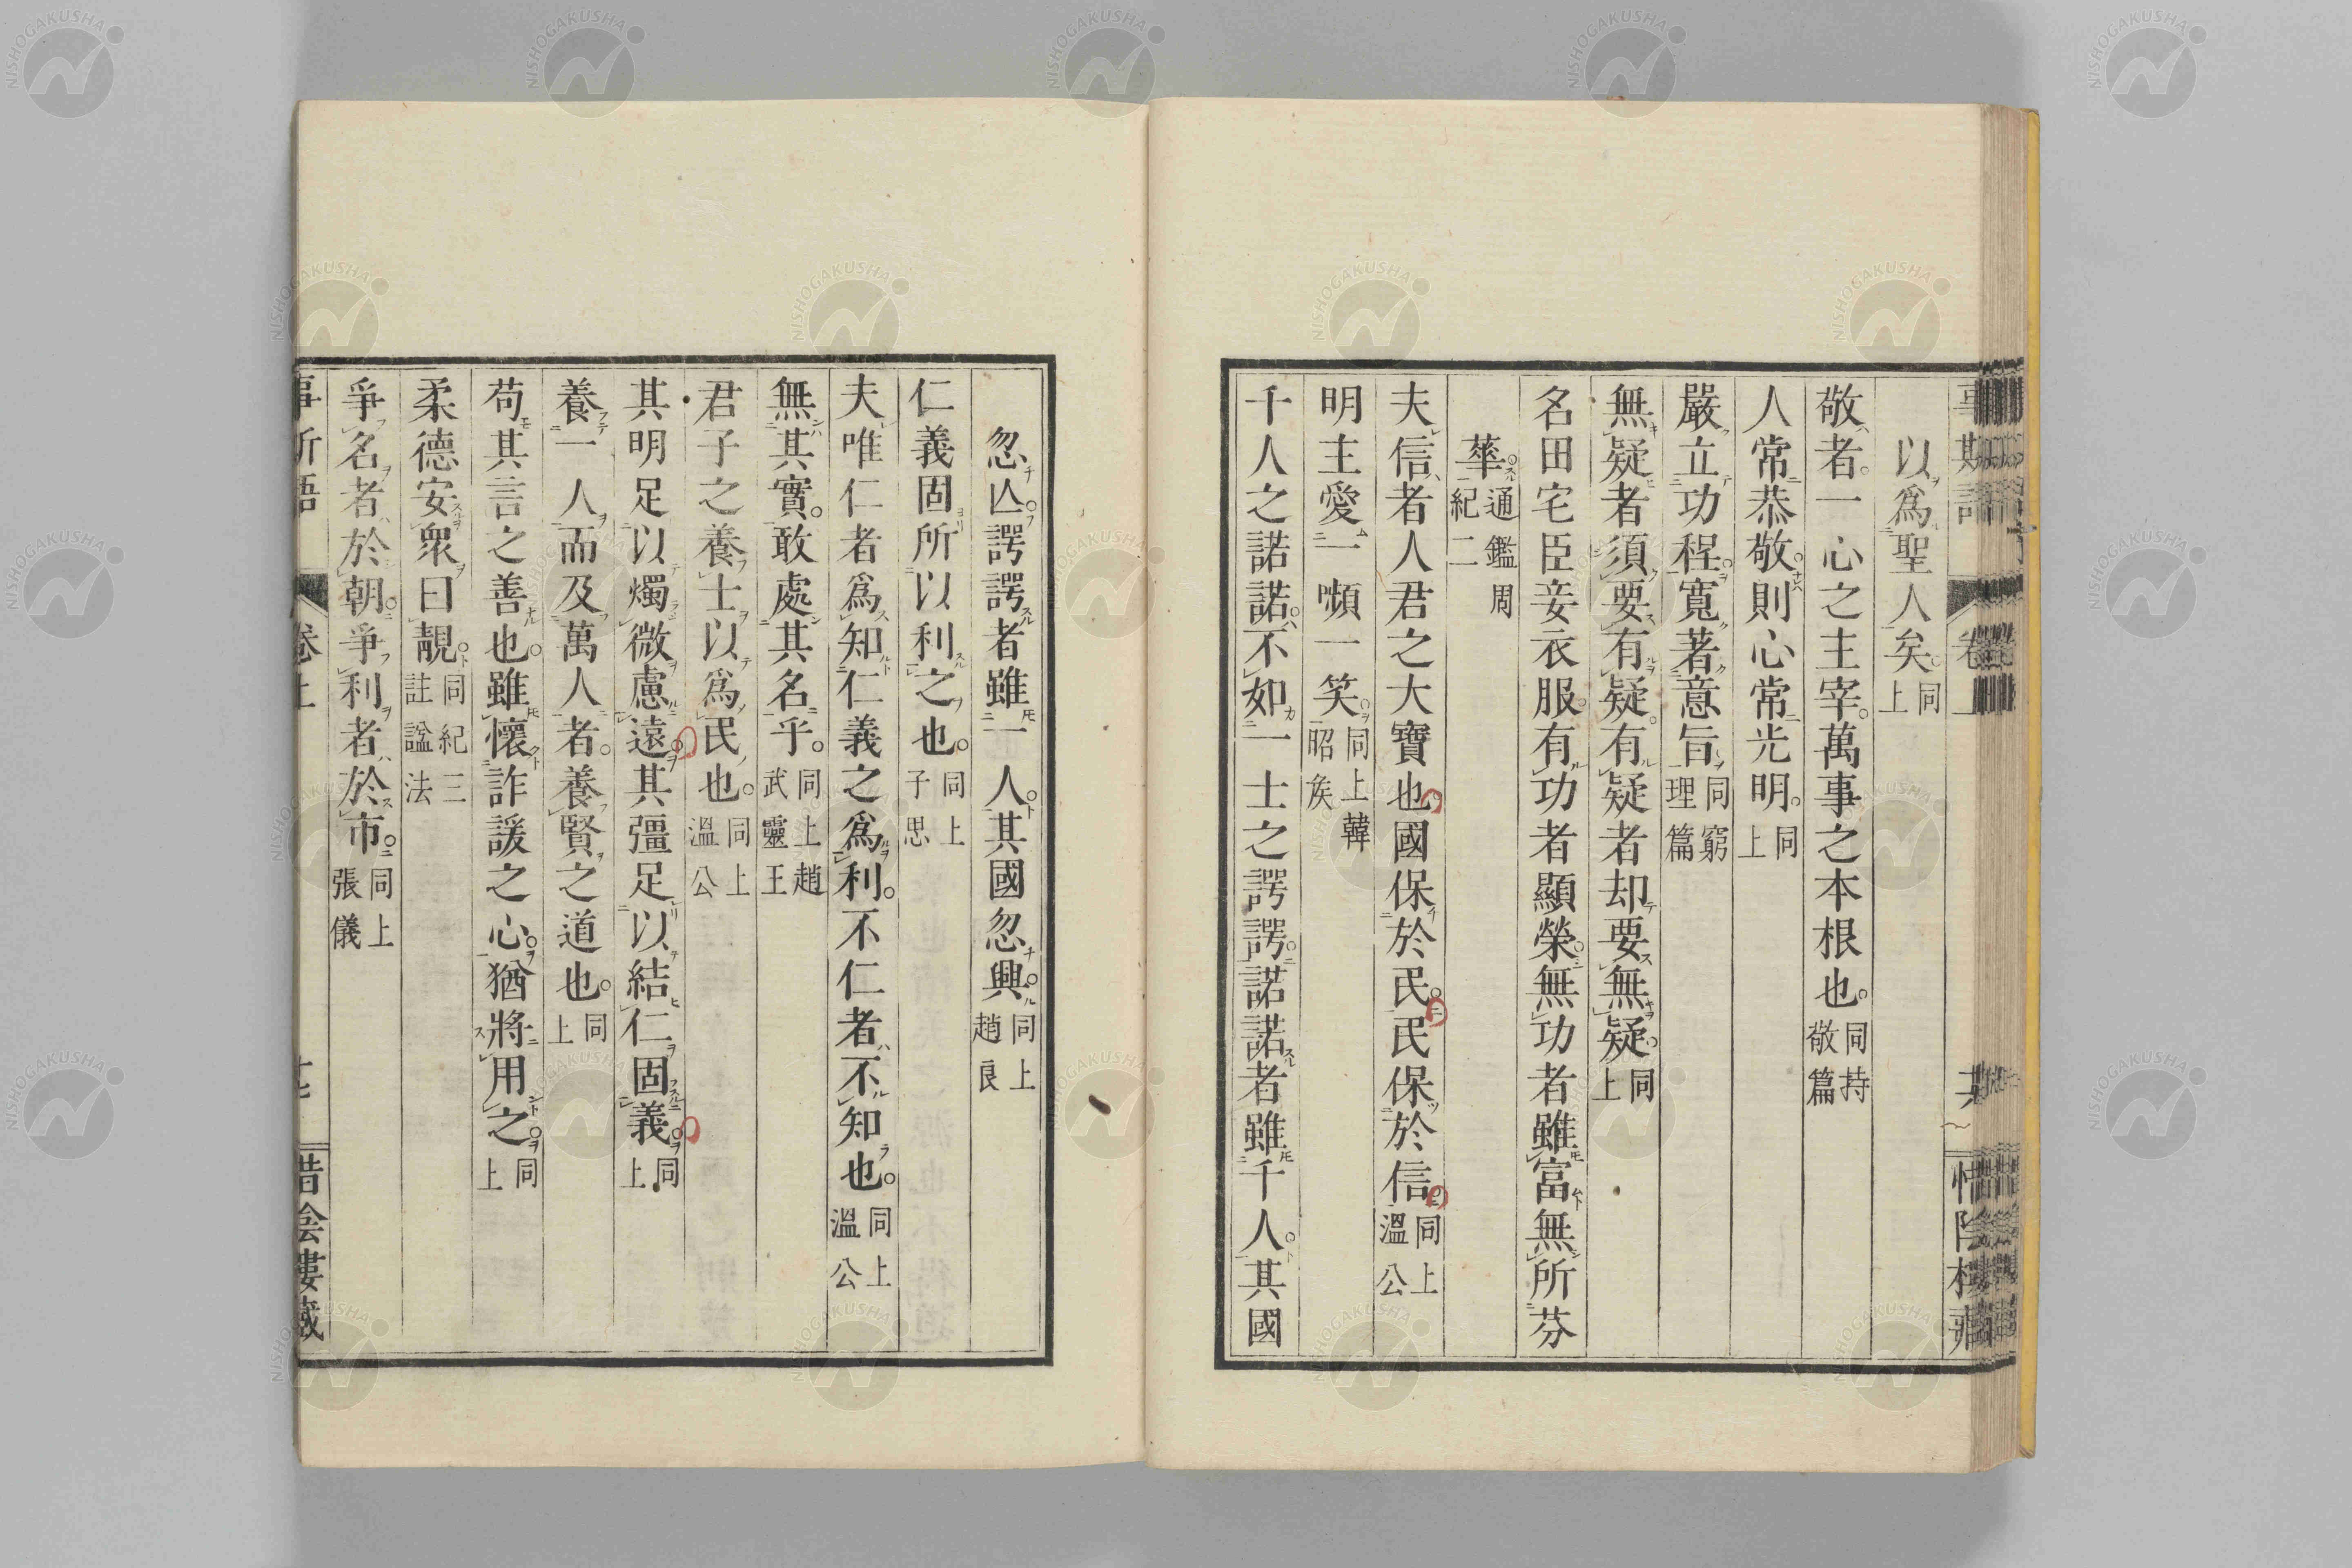 以爲聖人矣。同上
敬者。一心之主宰。萬事之本根也。同持敬篇
人常恭敬則心常光明。同上
嚴立功程寬著意旨。同窮理篇
無疑者須要有疑有疑者却要無疑。同上
名田宅臣妾衣服。有功者顯榮無功者雖富無所芬
華。通鑑周紀二
夫信者人君之大寶也國保於民民保於信同上溫公
明主愛一嚬一笑同上韓昭矦
千人之諾諾不如一士之諤諤諾諾者雖千人其國
忽亾諤諤者雖一人其國忽興同上趙良
仁義固所以利之也。同上子思
夫唯仁者爲知仁義之爲利。不仁者不知也。同上溫公
無其實。敢處其名乎。同上趙武靈王
君子之養士以爲民也。同上溫公
其明足以燭微慮遠其彊足以結仁固義同上
養一人而及萬人者。養賢之道也。同上
苟其言之善也。雖懷詐諼之心猶將用之同上
柔德安衆曰靚同紀三註諡法
爭名者於朝爭利者於市同上張儀
卷上
NISHOGAKUSHA